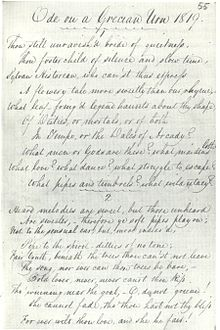 55
Ode on a Grecian Urn 1819.
Thou still unravish'd bride of quietness,
Thou foster child of silence and slow time,
Sylvan Historian, who can'st thus express
A flowery tale more sweetly than our rhyme,
What leaf-fring'd legend haunts about thy shape
Of Deities, or mortals, or of both
In Tempe, or the Dales of Arcady?
What men or Gods are these? what maidens loth
What love? what dance? what struggle to escape?
What pipes and timbrels? what wild extacy?
2
Heard melodies are sweet, but those unheard
Are sweeter, therefore ye soft pipes play on,
Not to the sensual ear, but more endear'd,
Pipe to the spirit ditties of no tone;
Fair Youth, beneath the trees thou can'st not leave
Thy song, nor ever can those trees be bare,
Bold lover, never, never can'st thou kiss,
Tho' winning near the goal—O do not grieve
She cannot fade, tho' thou hast not thy bliss
For ever wilt thou love, and she be fair.